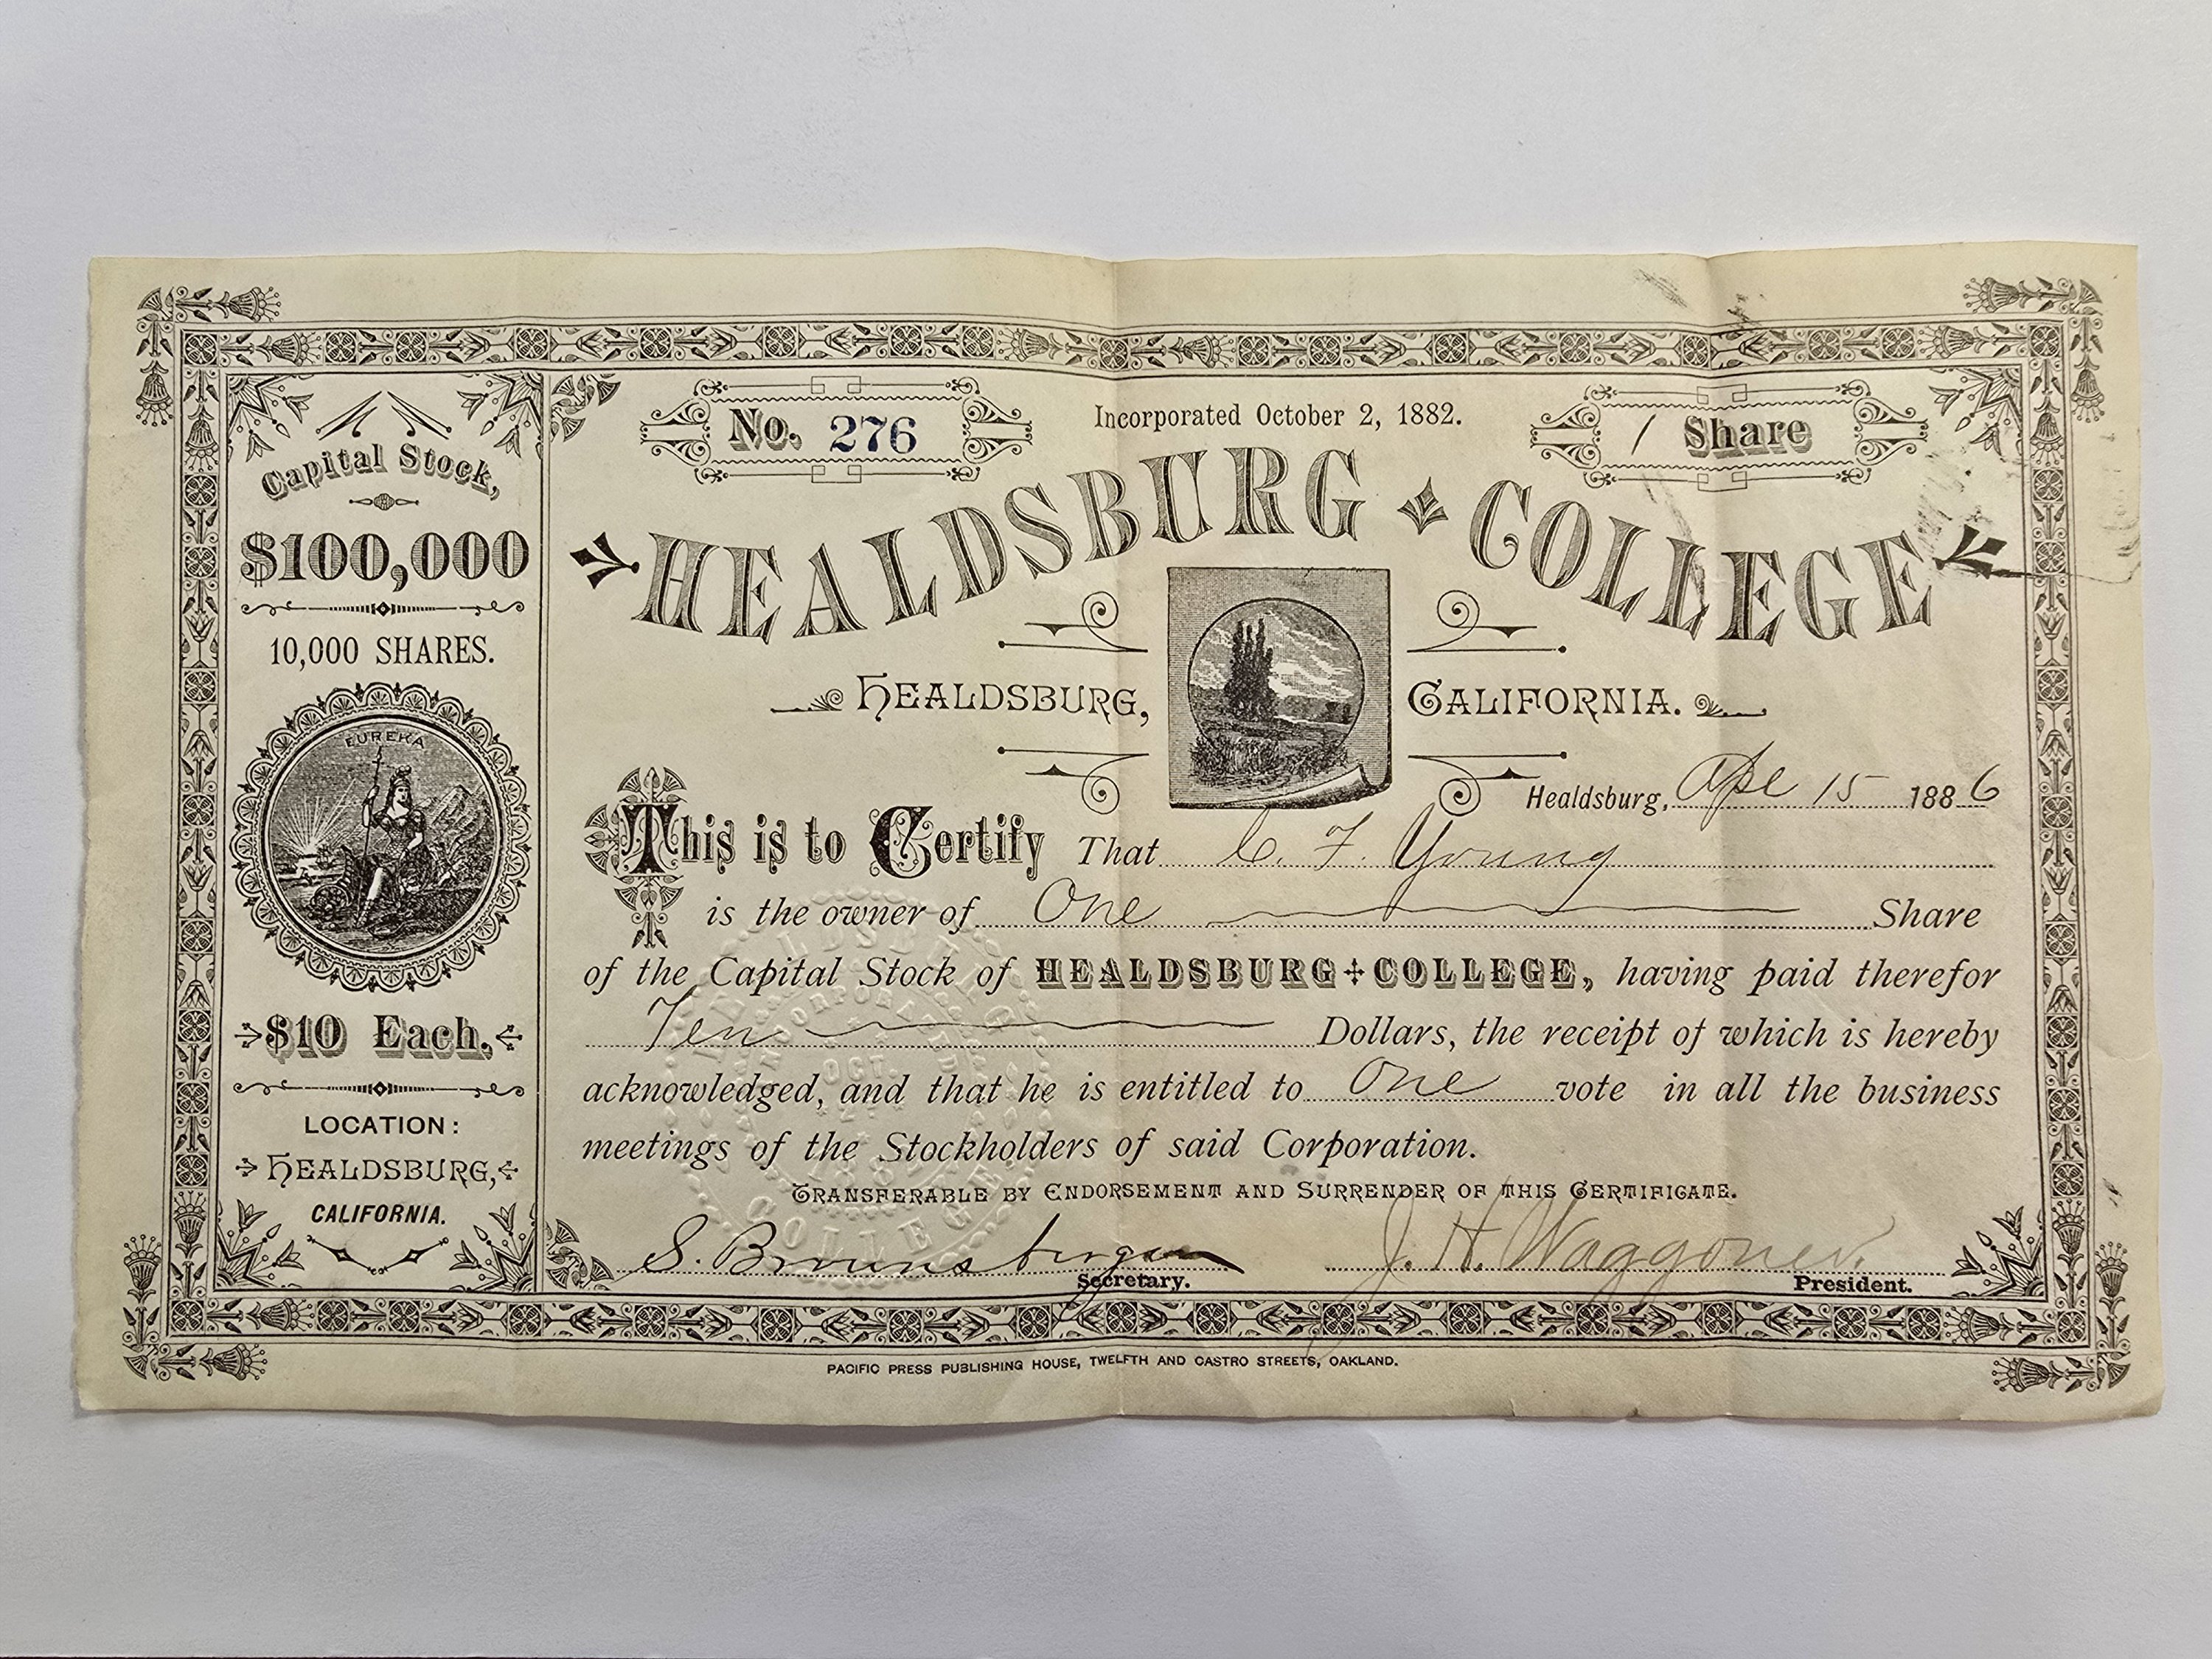 Capital Stock,
$100,000
10,000 SHARES.
EUREKA
$10 Each.
LOCATION:
HEALDSBURG,
CALIFORNIA.
No. 276
Incorporated October 2, 1882.
1 Share
HEALDSBURG COLLEGE
HEALDSBURG, CALIFORNIA.
Healdsburg, Apl 15 1886
This is to Certify That C. F. Young
is the owner of One Share
of the Capital Stock of HEALDSBURG COLLEGE, having paid therefor
Ten Dollars, the receipt of which is hereby
acknowledged, and that he is entitled to One vote in all the business
meetings of the Stockholders of said Corporation.
TRANSFERABLE BY ENDORSEMENT AND SURRENDER OF THIS CERTIFICATE.
S. Brownsberger J. H. Waggoner.
Secretary. President.
PACIFIC PRESS PUBLISHING HOUSE, TWELFTH AND CASTRO STREETS, OAKLAND.